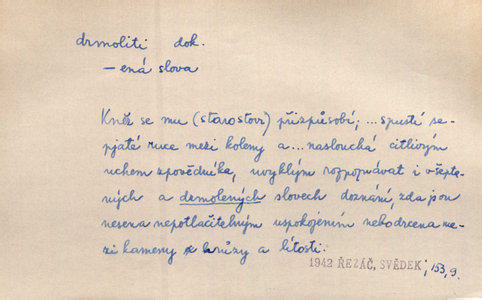 drmoliti dok.
-ená slova
Kněz se mu (starostovi) přizpůsobí; ...spustí se-
pjaté ruce mezi koleny a ... naslouchá citlivým
uchem zpovědníka, uvyklým rozpoznávat i všepta-
ných a drmolených slovech doznání, zda jsou
nesena nepotlačitelným uspokojením nebo drcena me-
zi kameny hrůzy a lítosti.
1942 ŘEZÁČ, SVĚDEK; 153, 9.